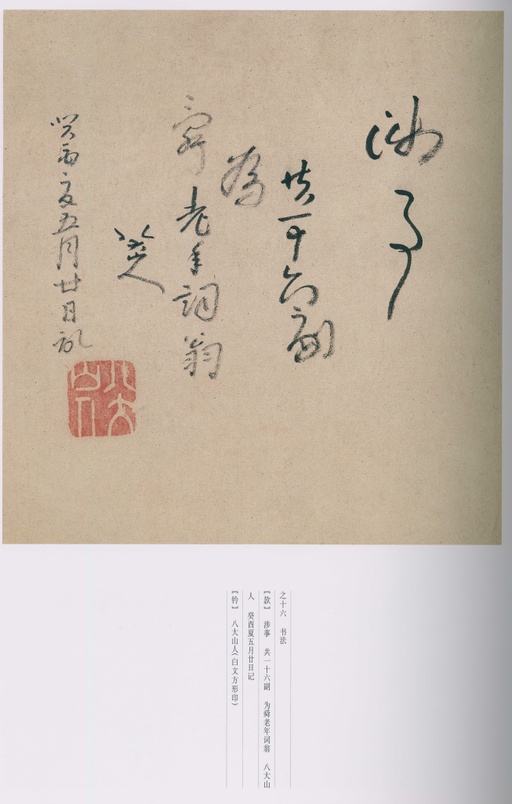 涉事
共一十六副
为
舜老年词翁
八大山人
癸酉夏五月廿日記
八大山人
之十六 书法
【款】 涉事 共一十六副 为舜老年词翁 八大山
人 癸酉夏五月廿日记
【钤】 八大山人（白文方形印）